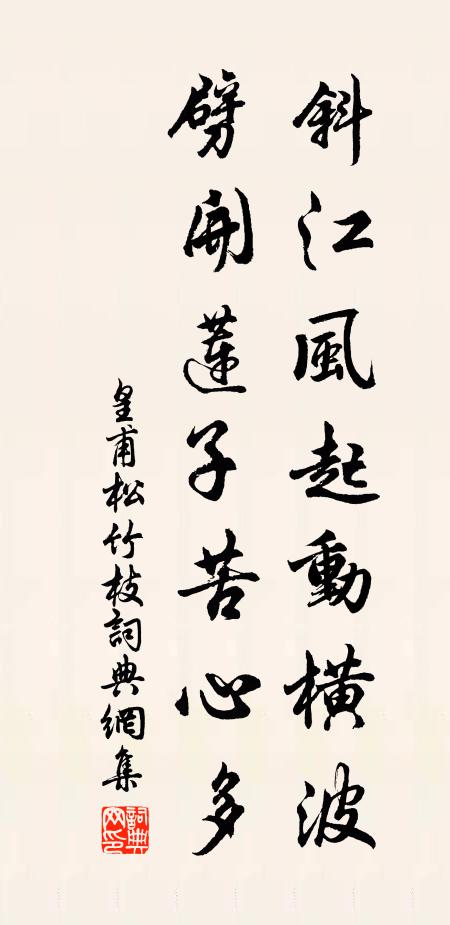 斜江風起動橫波
劈開蓮子苦心多
皇甫松竹枝詞典網集
詞典